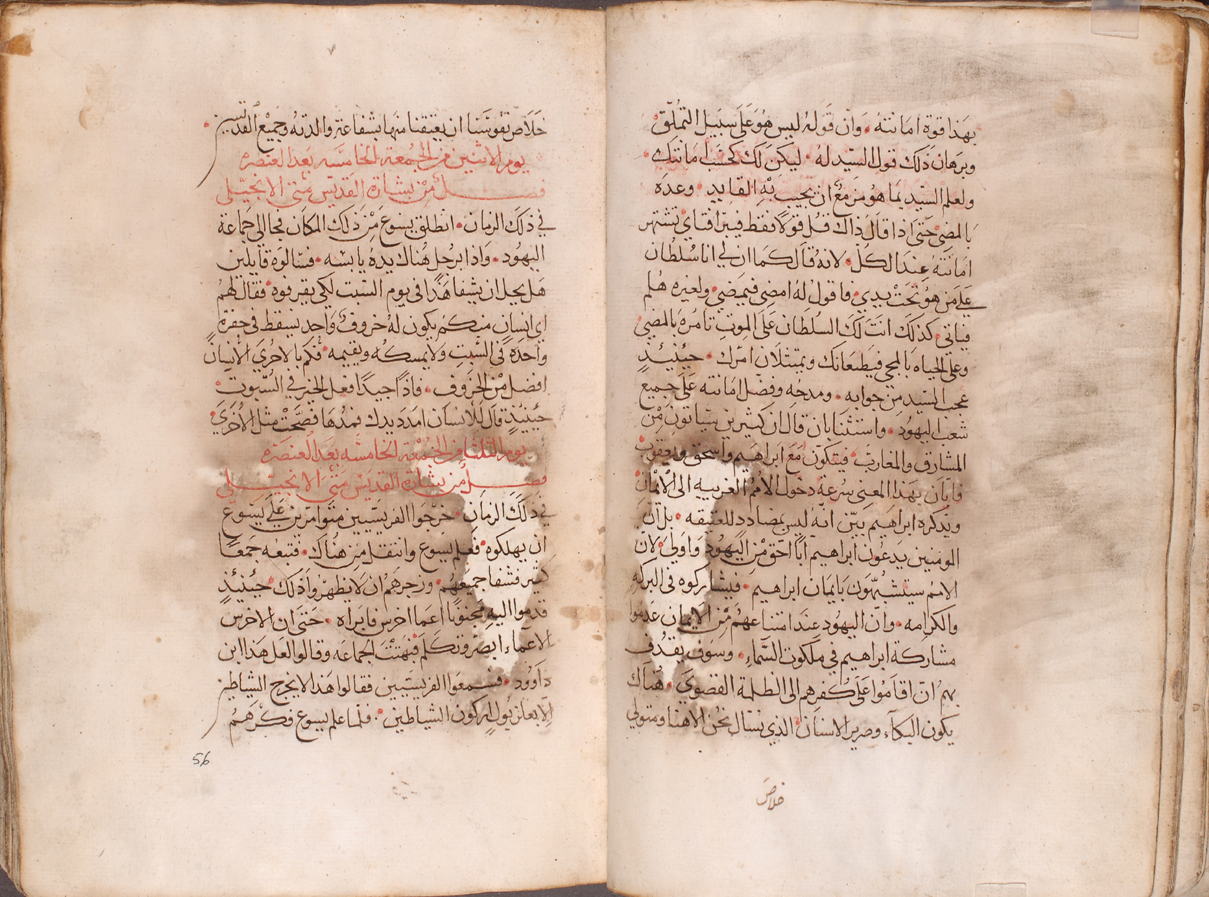 بهذا قوة امانته • وان قوله ليس هو على سبيل التملّق
وبرهان ذلك قول السيد له • ليكن لك كحسب امانتك •
ولعلم السيد بما هو مزمع ان يجيب به القايد • وعده
بالمضي حتى اذا قال ذاك قل قولا فقط فيبرا فتاي تشتهر
امانته عند الكل • لانه قال كما ان لي انا سلطان
على من هو تحت يدي • فاقول له امضى فيمضي • ولغيره هلم
فياتي • كذلك انت لك السلطان على الموت تامره بالمضي
وعلى الحياه بالمجي فيطيعانك ويمتثلان امرك • حينيذ
عجب السيد من جوابه • ومدحه وفضل امانته على جميع
شعب اليهود • واستثنا بان قال ان كثيرين سياتون من
المشارق والمغارب • فيتكون مع ابراهيم واسحق ويعقوب
فابان بهذا المعنى سرعة دخول الامم الغريبه الى الايمان
وبذكره ابراهيم بيّن انه ليس بمضادد للعتيقه • بل ان
المومنين يدعون ابراهيم ابا احق من اليهود واولى • لان
الامم سيتشبهون بايمان ابراهيم • فيشاركوه في البركه
والكرامه • وان اليهود عند امتناعهم من الايمان عدموا
مشاركة ابراهيم في ملكوت السماء • وسوف يقذف
بهم ان اقاموا على كفرهم الى الظلمة القصوى • هناك
يكون البكاء وصرير الاسنان • الذي نسال نحن الاهنا ومتولي
خلاص
خلاص نفوسنا ان يعتقنا منها بشفاعة والدته وجميع القديسين •
يوم الاثنين من الجمعة الخامسه بعد العنصره
فصل من بشارة القديس متى الانجيلي
في ذلك الزمان • انطلق يسوع من ذلك المكان فجا الى جماعة
اليهود • واذا برجل هناك يده يابسه • فسالوه قايلين
هل يحل ان يشفا هذا في يوم السبت لكي يقرفوه • فقال لهم
اي انسان منكم يكون له خروف واحد يسقط في حفرة
واحده في السبت ولا يمسكه ويقيمه • فكم بالاحرى الانسان
افضل من الخروف • فاذا جيدا فعل الخير في السبوت •
حينيذ قال للانسان امدد يدك فمدها فصحت مثل الاخرى •
يوم الثلثا من الجمعة الخامسه بعد العنصرة
فصل من بشارة القديس متى الانجيلي
في ذلك الزمان • خرجوا الفريسيين متوامرين على يسوع
ان يهلكوه • فعلم يسوع وانتقل من هناك • فتبعه جمعا
كثير فشفا جميعهم • وزجرهم ان لا يظهروا ذلك • حينيذ
قدموا اليه مجنونا اعما اخرس فابراه • حتى ان الاخرس
الاعماء ابصر وتكلم فبهتت الجماعه وقالوا لعل هذا ابن
داوود • فسمعوا الفريسيين فقالوا هذا لا يخرج الشياطين
الا بباعلزبول اركون الشياطين • فلما علم يسوع فكرهم
56